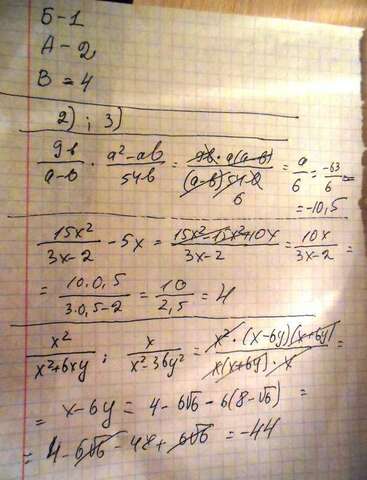 Б-1
А-2
В=4
2) ; 3)
9b/(a-b) · (a²-ab)/(54b) = (9b·a(a-b))/((a-b)54b) = a/6 = -63/6 =
6
= -10,5
15x²/(3x-2) - 5x = (15x²-15x²+10x)/(3x-2) = 10x/(3x-2) =
= (10·0,5)/(3·0,5-2) = 10/2,5 = 4
x²/(x²+6xy) ; x/(x²-36y²) = (x²·(x-6y)(x+6y))/(x(x+6y)·x) =
= x-6y = 4-6√6-6(8-√6) =
= 4-6√6-48+6√6 = -44